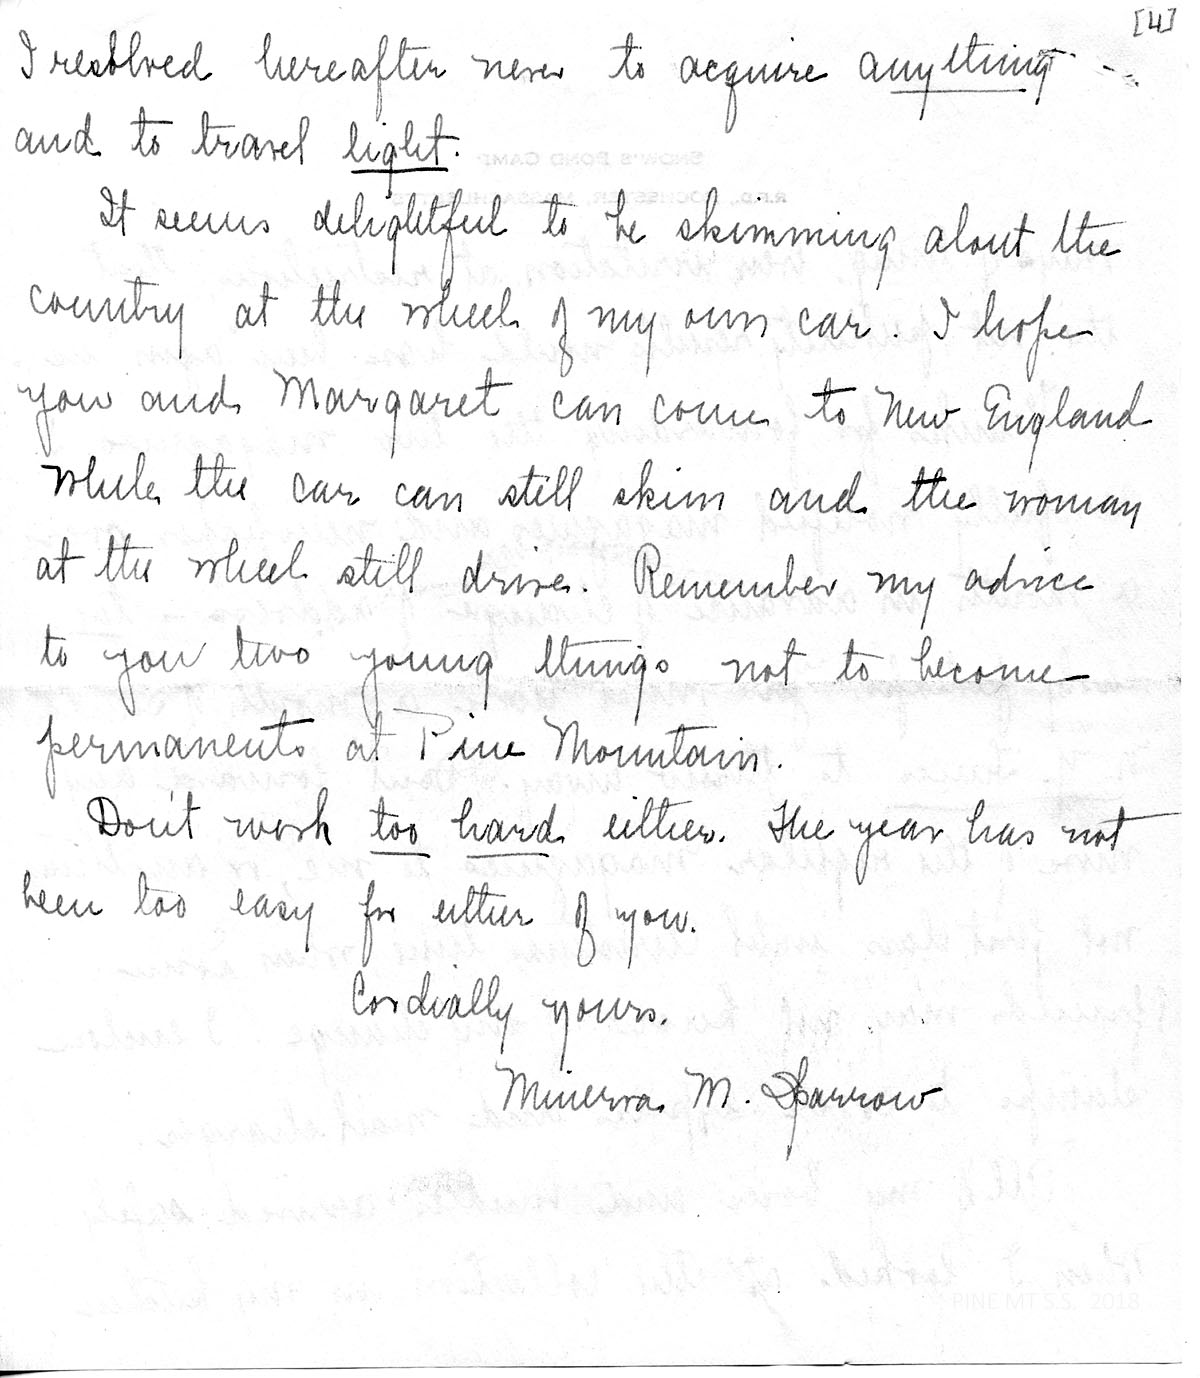 [4]
I resolved hereafter never to acquire anything --
and to travel light.
It seems delightful to be skimming about the
country at the wheel of my own car. I hope
you and Margaret can come to New England
while the car can still skim and the woman
at the wheel still drive. Remember my advice
to you two young things not to become
permanents at Pine Mountain.
Don't work too hard either. The year has not
been too easy for either of you.
Cordially yours,
Minerva M. Sparrow
PINE MT S.S. 2018